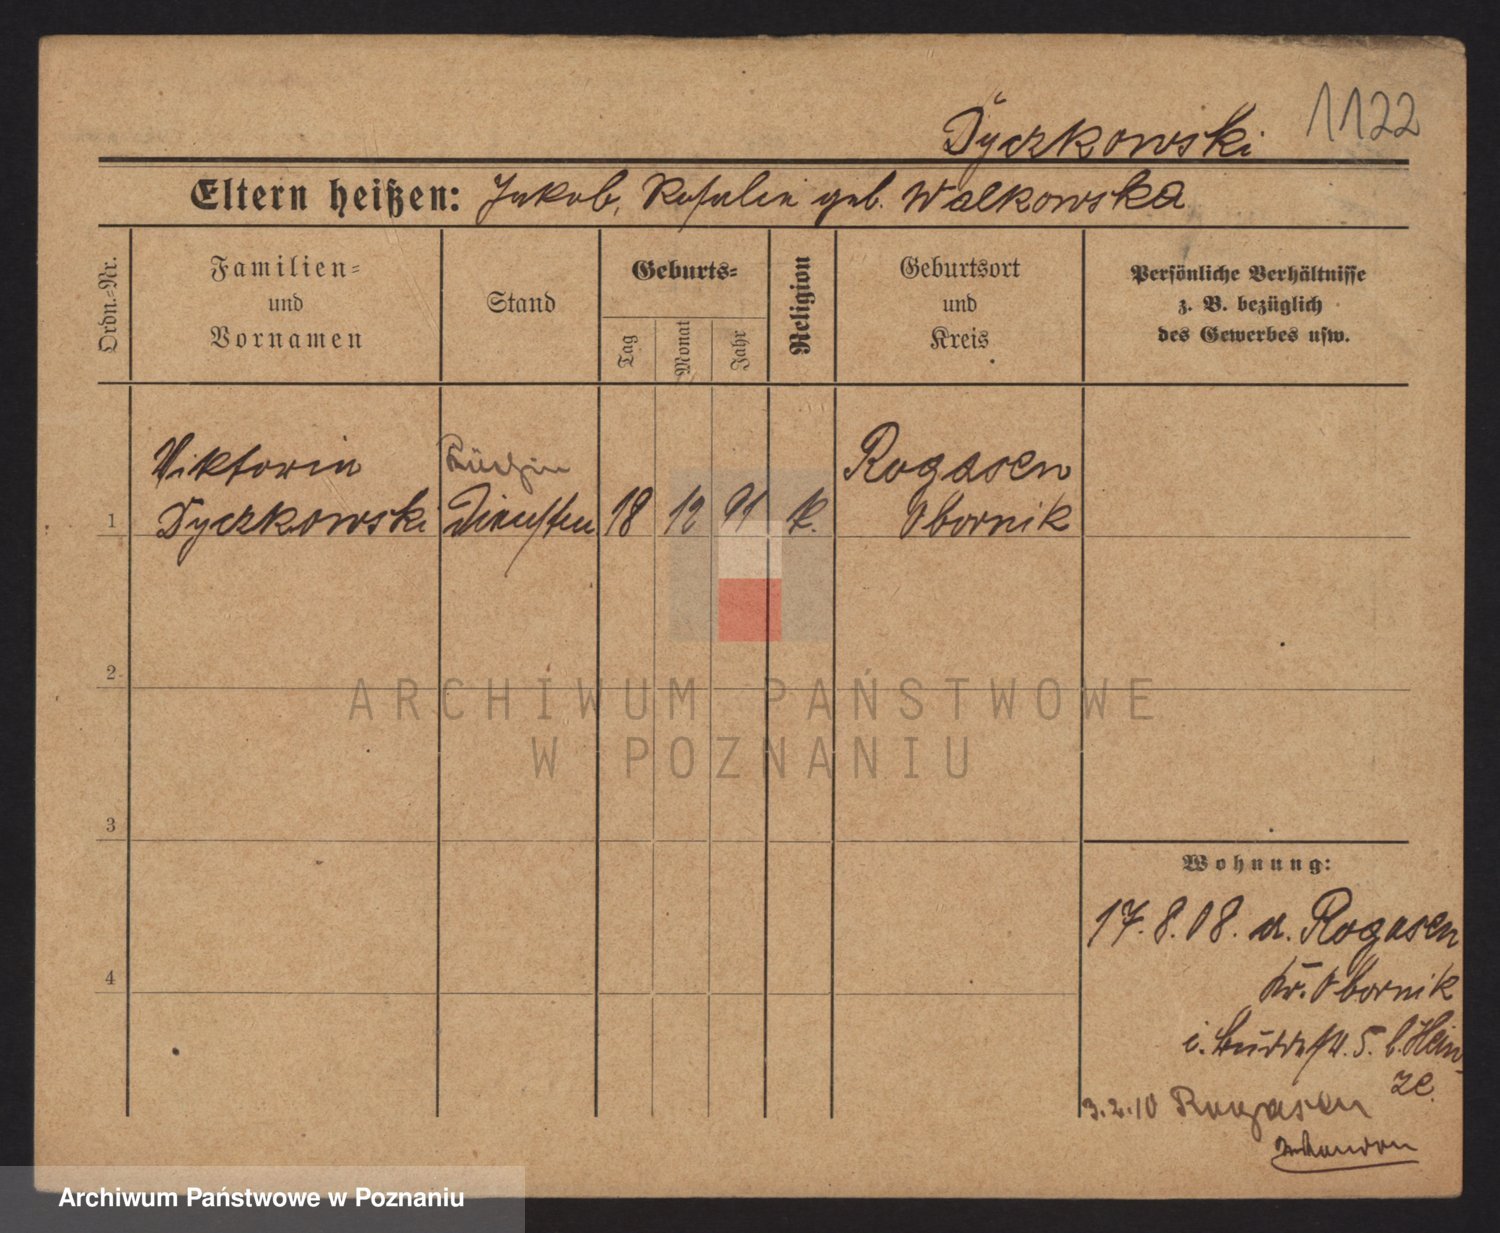 1122
Dyczkowski
Eltern heißen: Jakob, Rosalie geb. Walkowska
Ordn.=Nr.
Familien=
und
Vornamen
Stand
Geburts=
Tag
Monat
Jahr
Religion
Geburtsort
und
Kreis
Persönliche Verhältnisse
z. B. bezüglich
des Gewerbes usw.
Viktoria
Dyczkowski
18 12 91 k.
Rogasen
Obornik
1
2
3
4
Wohnung:
17.8.08. a. Rogasen
Kr. Obornik
i. 5. b. Hein-
ze.
3.2.10 Rogasen
ARCHIWUM PAŃSTWOWE
W POZNANIU
Archiwum Państwowe w Poznaniu